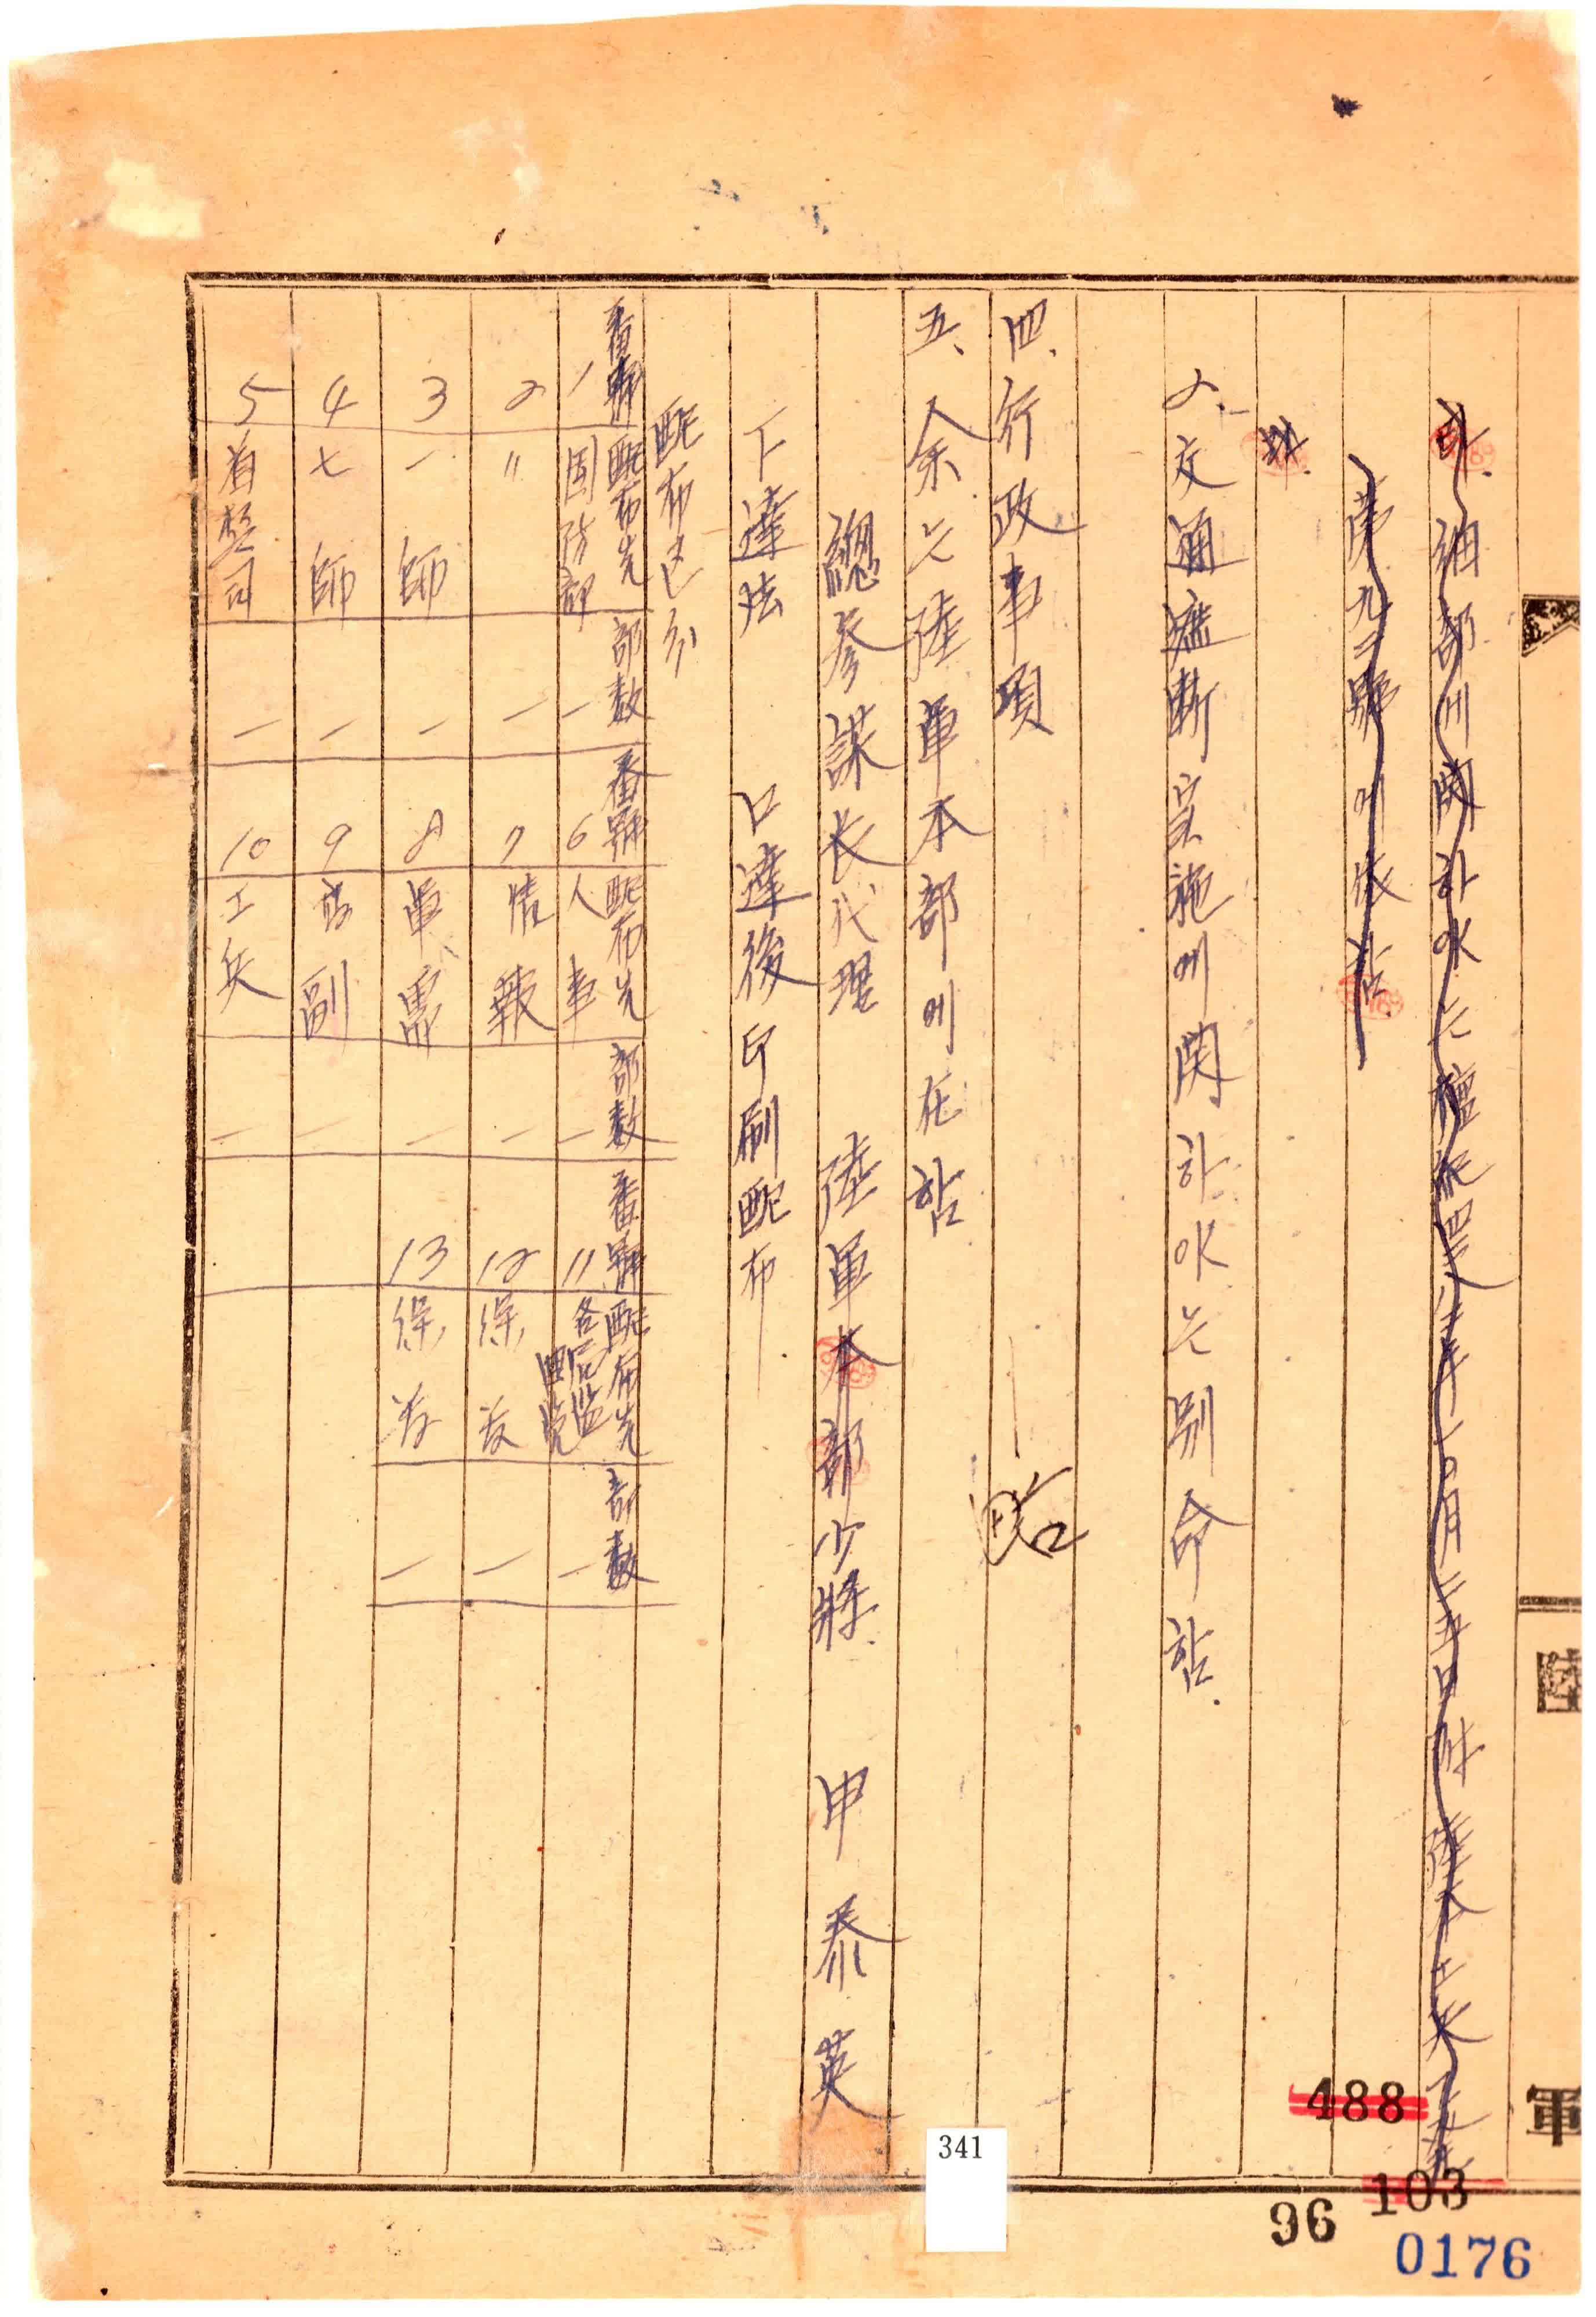 細部에 関하야는 檀紀四二八二年一〇月二五日
第九二號에 依함
2. 交通遮断実施에 関하야는 别命함.
四、行政事項 略
五、余는 陸軍本部에 在함
總参謀長代理 陸軍本部少將 申泰英
下達法 口達後印刷配布
配布区分
番號 配布先 部数 番號 配布先 部数 番號 配布先 部数
1 国防部 一 6 人事 一 11 各局監 一
2 〃 一 7 情報 一 12 保存 一
3 一師 一 8 軍需 一 13 保存 一
4 七師 一 9 高副 一
5 首警司 一 10 工兵 一
陸
軍
488
341
103
96
0176